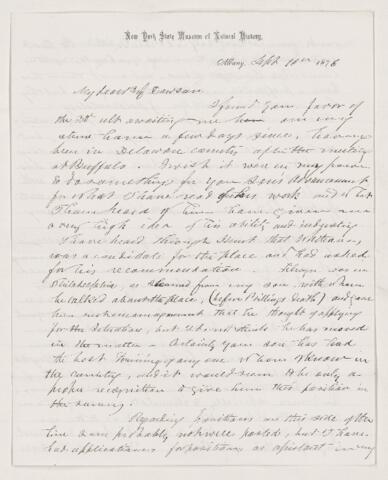 New York State Museum of Natural History,
Albany, Sept 10th 1876
My dear Prof Dawson
I found your favor of
the 20th ult awaiting me here on my
return home a few days since, having
been in Delaware County after the meeting
at Buffalo. I wish it were in my power
to do something for your Son's advancement
for what I have read of his work and what
I have heard of him have given me
a very high idea of his ability and industry
I have heard through Hunt that Whiteaves
was a candidate for the place and had asked
for his recommendation.
Philadelphia, as I learned from my son, with whom
he talked about the place, (before Billings death) and gave
him encouragement that he thought of applying
for the situation, but I do not think he has moved
in the matter. Certainly your son has had
the best training of any one whom I know in
the country, and it would seem to be only a
proper recognition to give him this position in
the survey.
Regarding positions on this side of the
line I am probably not well posted, but I have
had applications for positions as assistant in my